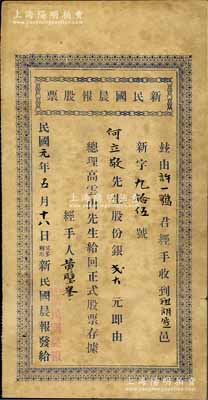 上海陽明拍賣
新民國晨報股票
茲由許一鶚君經手收到
新字九拾伍號
何立敬先生股份銀弍大元即由
總理高雲山先生給回正式股票存據
經手人黃
民國元年五月十八日新民國晨報發給